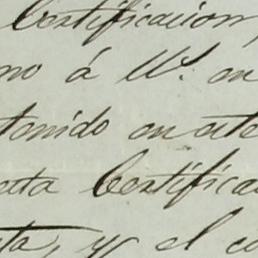 Certificacion,
mo á V. en
tenido en este
esta Certifica
ta, y el co